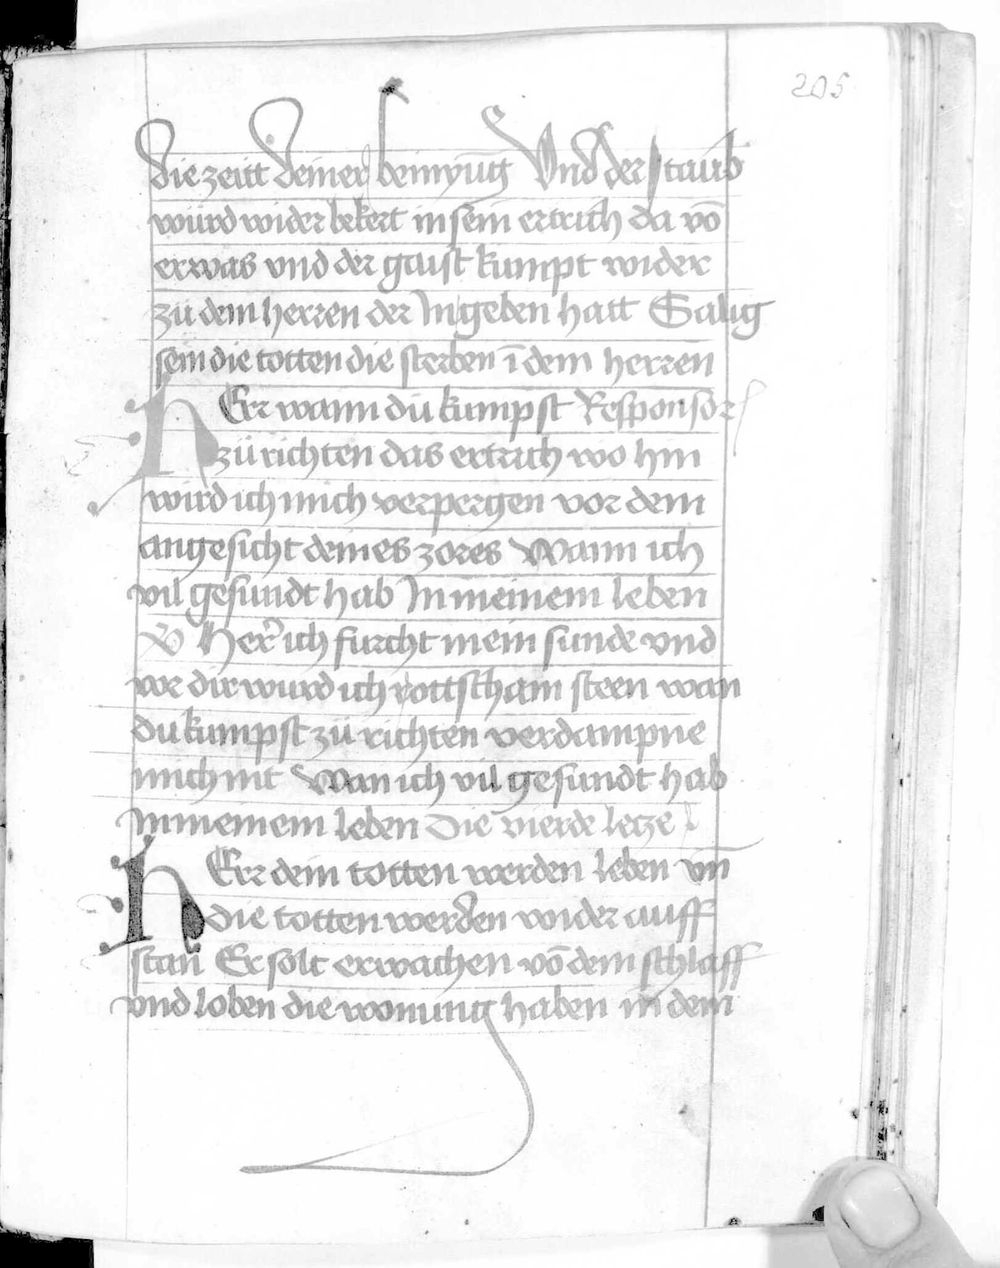 205
die zeitt deiner heimyūg Vnd der staub
würd wider bekert in sein ertrich da vō
er was vnd der gaist kumpt wider
zü dem herren der In geben hatt Sälig
sein die totten die sterben ī dem herren
HErr wann du kumpst Responsor
zü richten das ertrich wo hin
wird ich mich verpergen vor dem
angesicht deines zores Wann ich
vil gesundt hab In meinem leben
V Herr ich furcht mein sunde vnd
vor dir wurd ich rottscham steen wan
du kumpst zü richten verdampne
mich nit Wan ich vil gesundt hab
In meinem leben Die vierde letze
HErr dein totten werden leben vn̄
die totten werden wider auff
stan Er solt erwachen vō dem schlaff
vnd loben die wonung haben in dem